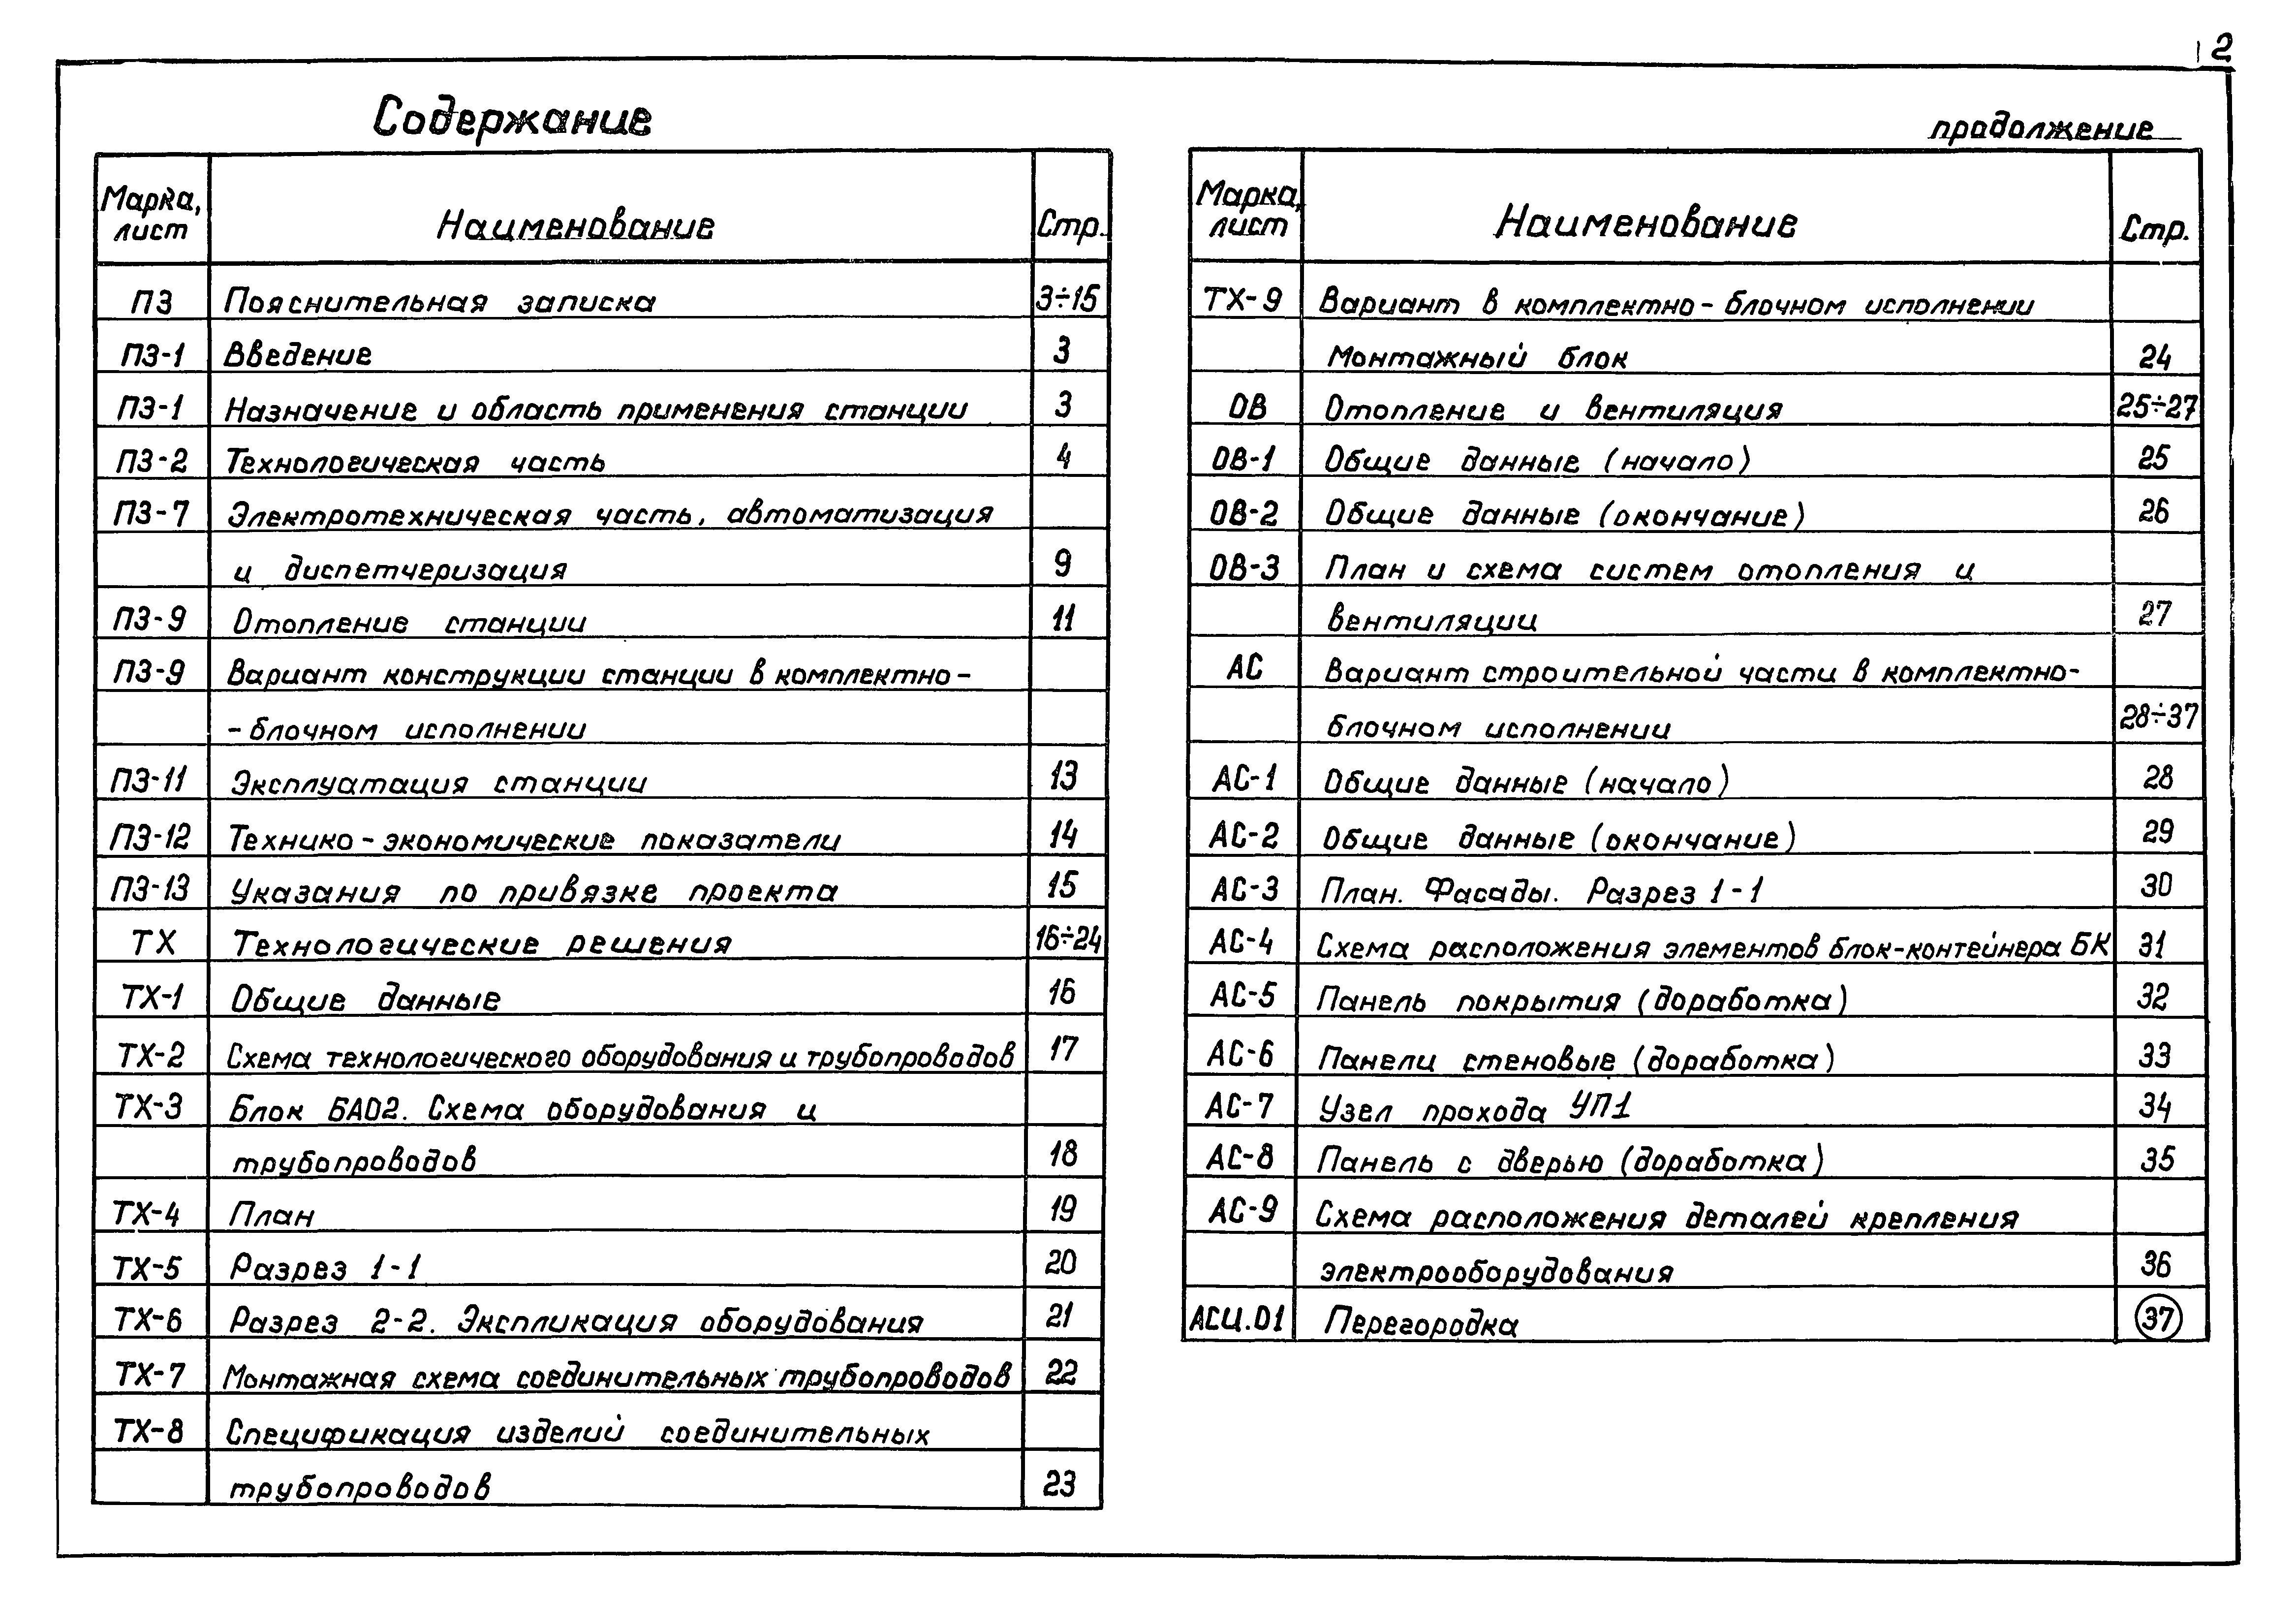 2
Содержание
Марка, лист Наименование Стр.
ПЗ Пояснительная записка 3÷15
ПЗ-1 Введение 3
ПЗ-1 Назначение и область применения станции 3
ПЗ-2 Технологическая часть 4
ПЗ-7 Электротехническая часть, автоматизация
и диспетчеризация 9
ПЗ-9 Отопление станции 11
ПЗ-9 Вариант конструкции станции в комплектно-
-блочном исполнении
ПЗ-11 Эксплуатация станции 13
ПЗ-12 Технико-экономические показатели 14
ПЗ-13 Указания по привязке проекта 15
ТХ Технологические решения 16÷24
ТХ-1 Общие данные 16
ТХ-2 Схема технологического оборудования и трубопроводов 17
ТХ-3 Блок БАО2. Схема оборудования и
трубопроводов 18
ТХ-4 План 19
ТХ-5 Разрез 1-1 20
ТХ-6 Разрез 2-2. Экспликация оборудования 21
ТХ-7 Монтажная схема соединительных трубопроводов 22
ТХ-8 Спецификация изделий соединительных
трубопроводов 23
продолжение
Марка, лист Наименование Стр.
ТХ-9 Вариант в комплектно-блочном исполнении
Монтажный блок 24
ОВ Отопление и вентиляция 25÷27
ОВ-1 Общие данные (начало) 25
ОВ-2 Общие данные (окончание) 26
ОВ-3 План и схема систем отопления и
вентиляции 27
АС Вариант строительной части в комплектно-
блочном исполнении 28÷37
АС-1 Общие данные (начало) 28
АС-2 Общие данные (окончание) 29
АС-3 План. Фасады. Разрез 1-1 30
АС-4 Схема расположения элементов блок-контейнера БК 31
АС-5 Панель покрытия (доработка) 32
АС-6 Панели стеновые (доработка) 33
АС-7 Узел прохода УП1 34
АС-8 Панель с дверью (доработка) 35
АС-9 Схема расположения деталей крепления
электрооборудования 36
АСИ.01 Перегородка 37